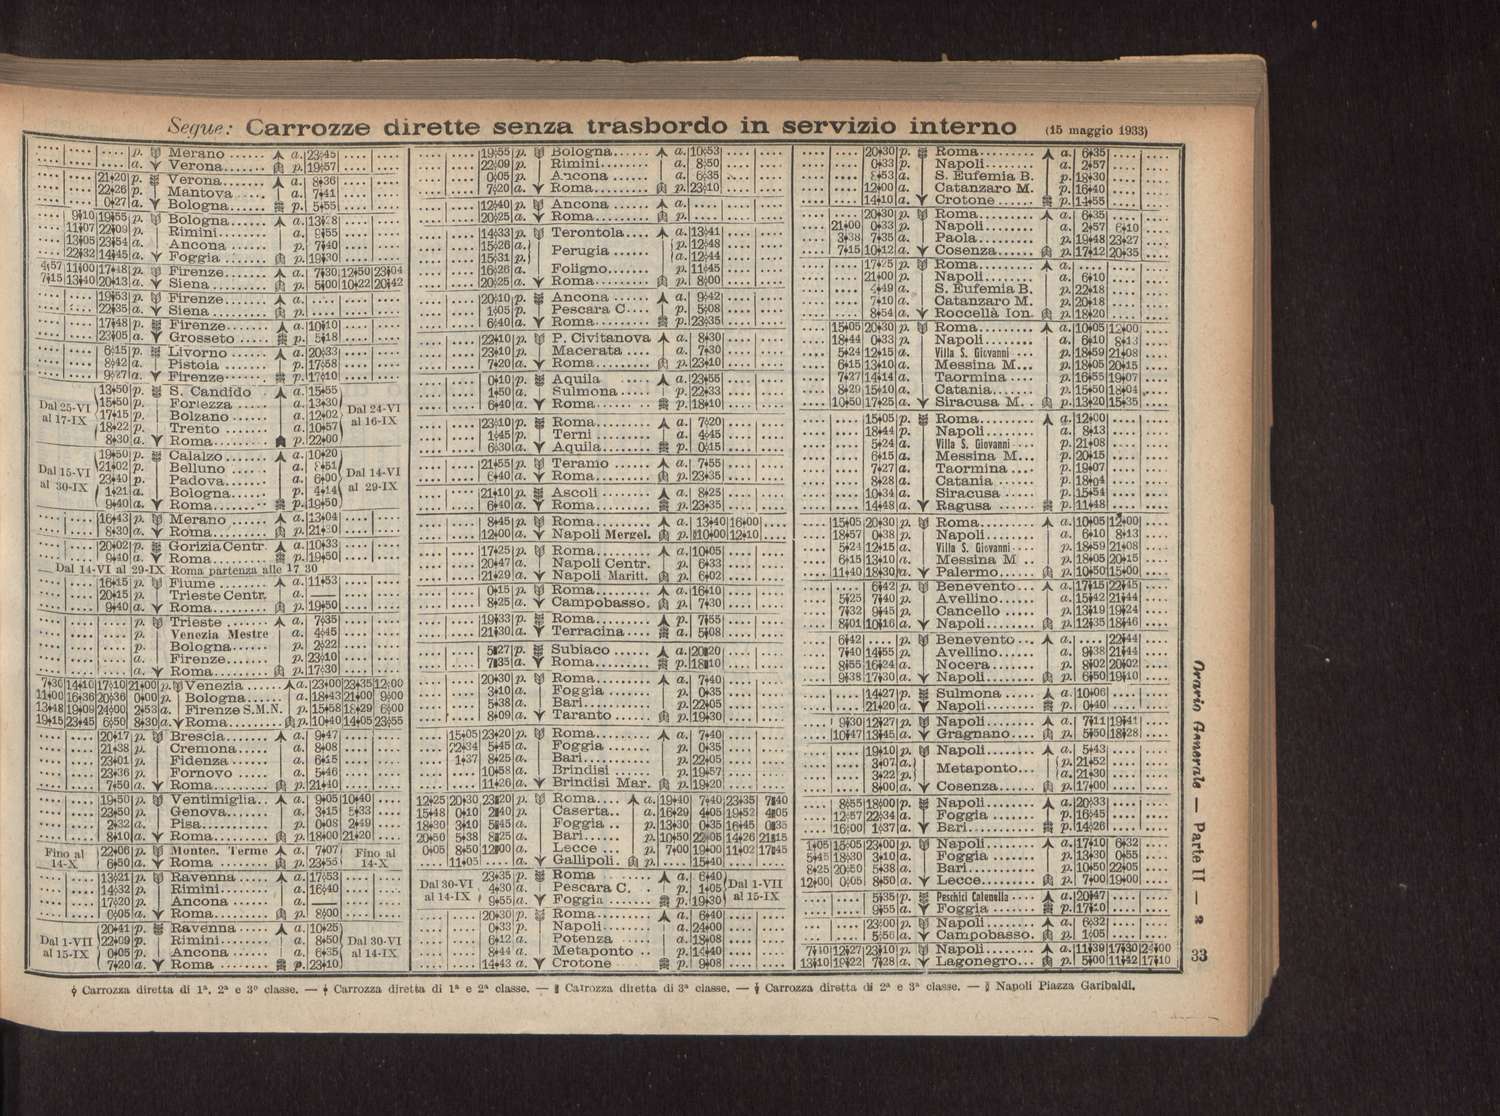 Segue: Carrozze dirette senza trasbordo in servizio interno (15 maggio 1933)
p. Merano a. 23 45
a. Verona p. 19 57
21 20 p. Verona a. 8 36
22 26 p. Mantova a. 7 41
0 27 a. Bologna p. 5 55
9 10 19 55 p. Bologna a.
11 07 22 09 p. Rimini a. 9 55
13 05 23 54 a. Ancona p. 7 40
22 32 14 45 a. Foggia p. 19 30
4 57 11 00 17 48 p. Firenze a. 7 30 12 50 23 04
7 15 13 40 20 13 a. Siena p. 5 00 10 22 20 42
19 53 p. Firenze a.
22 35 a. Siena p.
17 48 p. Firenze a. 10 10
23 05 a. Grosseto p. 5 18
6 15 p. Livorno a. 20 33
8 42 a. Pistoia p. 17 58
9 27 a. Firenze p. 17 10
13 50 p. S. Candido a. 15 55
Dal 25-VI al 17-IX 15 50 p. Fortezza a. 13 30 Dal 24-VI al 16-IX
17 15 p. Bolzano a. 12 02
18 22 p. Trento a. 10 57
8 30 a. Roma p. 22 00
19 50 p. Calalzo a. 10 20
Dal 15-VI al 30-IX 21 02 p. Belluno a. 8 51 Dal 14-VI al 29-IX
23 40 p. Padova a. 6 00
1 21 a. Bologna p. 4 14
9 40 a. Roma p. 19 50
16 43 p. Merano a. 13 04
8 30 a. Roma p.
20 02 p. Gorizia Centr. a. 10 33
9 40 a. Roma p. 19 50
Dal 14-VI al 29-IX Roma partenza alle 17 30
16 15 p. Fiume a. 11 53
20 15 p. Trieste Centr. a. —
9 40 a. Roma p. 19 50
p. Trieste a. 7 35
p. Venezia Mestre a. 4 45
p. Bologna a. 2 22
a. Firenze p. 23 10
a. Roma p. 17 30
7 30 14 10 17 10 21 00 p. Venezia a. 23 00 23 35 12 00
11 00 16 36 20 36 0 00 p. Bologna a. 18 43 21 00 9 00
13 48 19 09 24 00 2 53 a. Firenze S.M.N. p. 15 58 18 29 6 00
19 15 23 45 6 50 8 30 a. Roma p. 10 40 14 05 23 55
20 17 p. Brescia a. 9 47
21 38 p. Cremona a. 8 08
23 01 p. Fidenza a. 6 15
23 36 p. Fornovo a. 5 46
7 50 a. Roma p. 21 40
19 50 p. Ventimiglia a. 9 05 10 40
23 50 p. Genova a. 3 15 5 33
2 32 a. Pisa p. 0 08 2 49
8 10 a. Roma p. 18 00 21 20
Fino al 14-X 22 06 p. Montec. Terme a. 7 07 Fino al 14-X
6 50 a. Roma p. 23 55
13 21 p. Ravenna a. 17 53
14 32 p. Rimini a. 16 40
17 20 p. Ancona a. —
0 05 a. Roma p. 8 00
20 41 p. Ravenna a. 10 25
Dal 1-VII al 15-IX 22 09 p. Rimini a. 8 50 Dal 30-VI al 14-IX
0 05 p. Ancona a. 6 35
7 20 a. Roma p. 23 10
19 55 p. Bologna a. 10 53
22 09 p. Rimini a. 8 50
0 05 p. Ancona a. 6 35
7 20 a. Roma p. 23 10
12 40 p. Ancona a.
20 25 a. Roma p.
14 33 p. Terontola a. 13 41
15 26 a. Perugia p. 12 48
15 31 p. a. 12 44
16 26 a. Foligno p. 11 45
20 25 a. Roma p. 8 00
20 10 p. Ancona a. 9 42
1 05 p. Pescara C. a. 5 08
6 40 a. Roma p. 23 35
22 10 p. P. Civitanova a. 8 30
23 10 p. Macerata a. 7 30
7 20 a. Roma p. 23 10
0 10 p. Aquila a. 23 55
1 50 a. Sulmona p. 22 33
6 40 a. Roma p. 18 10
23 10 p. Roma a. 7 20
1 45 p. Terni a. 4 45
6 30 a. Aquila p. 0 15
21 55 p. Teramo a. 7 55
6 40 a. Roma p. 23 35
21 10 p. Ascoli a. 8 25
6 40 a. Roma p. 23 35
8 45 p. Roma a. 13 40 16 00
12 00 a. Napoli Mergel. p. 10 00 12 10
17 25 p. Roma a. 10 05
20 47 p. Napoli Centr. a. 6 33
21 29 a. Napoli Maritt. p. 6 02
0 15 p. Roma a. 16 10
8 25 a. Campobasso. p. 7 30
19 33 p. Roma a. 7 55
21 30 a. Terracina p. 5 08
5 27 p. Subiaco a. 20 20
7 35 a. Roma p. 18 10
20 30 p. Roma a. 7 40
3 10 a. Foggia p. 0 35
5 38 a. Bari p. 22 05
8 09 a. Taranto p. 19 30
15 05 23 20 p. Roma a. 7 40
22 34 5 45 a. Foggia p. 0 35
1 37 8 25 a. Bari p. 22 05
10 58 a. Brindisi p. 19 57
11 26 a. Brindisi Mar. p. 19 20
12 25 20 30 23 20 p. Roma a. 19 40 7 40 23 35 7 40
15 48 0 10 2 40 p. Caserta a. 16 29 4 05 19 52 4 05
18 30 3 10 5 45 a. Foggia p. 13 30 0 35 16 45 0 35
20 50 5 38 8 25 a. Bari p. 10 50 22 05 14 26 21 15
0 05 8 50 12 00 a. Lecce p. 7 00 19 00 11 02 17 45
11 05 a. Gallipoli p. 15 40
23 35 p. Roma a. 6 40
Dal 30-VI al 14-IX 4 30 a. Pescara C. p. 1 05 Dal 1-VII al 15-IX
9 55 a. Foggia p. 19 30
20 30 p. Roma a. 6 40
0 33 p. Napoli a. 24 00
6 12 a. Potenza p. 18 08
8 44 a. Metaponto p. 14 40
14 43 a. Crotone p. 9 08
20 30 p. Roma a. 6 35
0 33 p. Napoli a. 2 57
8 53 a. S. Eufemia B. p. 18 30
12 00 a. Catanzaro M. p. 16 40
14 10 a. Crotone p. 14 55
20 30 p. Roma a. 6 35
21 00 0 33 p. Napoli a. 2 57 6 10
3 38 7 35 a. Paola p. 19 48 23 27
7 15 10 12 a. Cosenza p. 17 12 20 35
17 25 p. Roma a.
21 00 p. Napoli a. 6 10
4 49 a. S. Eufemia B. p. 22 18
7 10 a. Catanzaro M. p. 20 18
8 54 a. Roccella Ion. p. 18 20
15 05 20 30 p. Roma a. 10 05 12 00
18 44 0 33 p. Napoli a. 6 10 8 13
5 24 12 15 a. Villa S. Giovanni p. 18 59 21 08
6 15 13 10 a. Messina M. p. 18 05 20 15
7 27 14 14 a. Taormina p. 16 55 19 07
8 29 15 10 a. Catania p. 15 50 18 04
10 50 17 25 a. Siracusa M. p. 13 20 15 35
15 05 p. Roma a. 12 00
18 44 p. Napoli a. 8 13
5 24 a. Villa S. Giovanni p. 21 08
6 15 a. Messina M. p. 20 15
7 27 a. Taormina p. 19 07
8 28 a. Catania p. 18 04
10 34 a. Siracusa p. 15 54
14 48 a. Ragusa p. 11 48
15 05 20 30 p. Roma a. 10 05 12 00
18 57 0 38 p. Napoli a. 6 10 8 13
5 24 12 15 a. Villa S. Giovanni p. 18 59 21 08
6 15 13 10 a. Messina M p. 18 05 20 15
11 40 18 30 a. Palermo p. 10 50 15 00
6 42 p. Benevento a. 17 15 22 45
5 25 7 40 p. Avellino a. 15 42 21 44
7 32 9 45 p. Cancello a. 13 19 19 24
8 01 10 16 a. Napoli p. 12 35 18 46
6 42 p. Benevento a. 22 44
7 40 14 55 p. Avellino a. 9 38 21 44
8 55 16 24 a. Nocera p. 8 02 20 02
9 38 17 30 a. Napoli p. 6 50 19 10
14 27 p. Sulmona a. 10 06
21 20 a. Napoli p. 0 40
9 30 12 27 p. Napoli a. 7 11 19 41
10 47 13 45 a. Gragnano p. 5 50 18 28
19 10 p. Napoli a. 5 43
3 07 a. Metaponto p. 21 52
3 22 p. a. 21 30
8 00 a. Cosenza p. 17 00
8 55 18 00 p. Napoli a. 20 33
12 57 22 34 a. Foggia p. 16 45
16 00 1 37 a. Bari p. 14 26
1 05 15 05 23 00 p. Napoli a. 17 10 6 32
5 45 18 30 3 10 a. Foggia p. 13 30 0 55
8 25 20 50 5 38 a. Bari p. 10 50 22 05
12 00 0 05 8 50 a. Lecce p. 7 00 19 00
5 35 p. Peschici Calenella a. 20 47
9 55 a. Foggia p. 17 10
23 00 p. Napoli a. 6 32
5 56 a. Campobasso. p. 1 05
7 10 12 27 23 10 p. Napoli a. 11 39 17 30 24 00
13 10 19 22 7 28 a. Lagonegro p. 5 00 11 42 17 10
Carrozza diretta di 1ª. 2ª e 3ª classe. — Carrozza diretta di 1ª e 2ª classe. — Carrozza diretta di 3ª classe. — Carrozza diretta di 2ª e 3ª classe. — Napoli Piazza Garibaldi.
Orario Generale — Parte II — 2
33